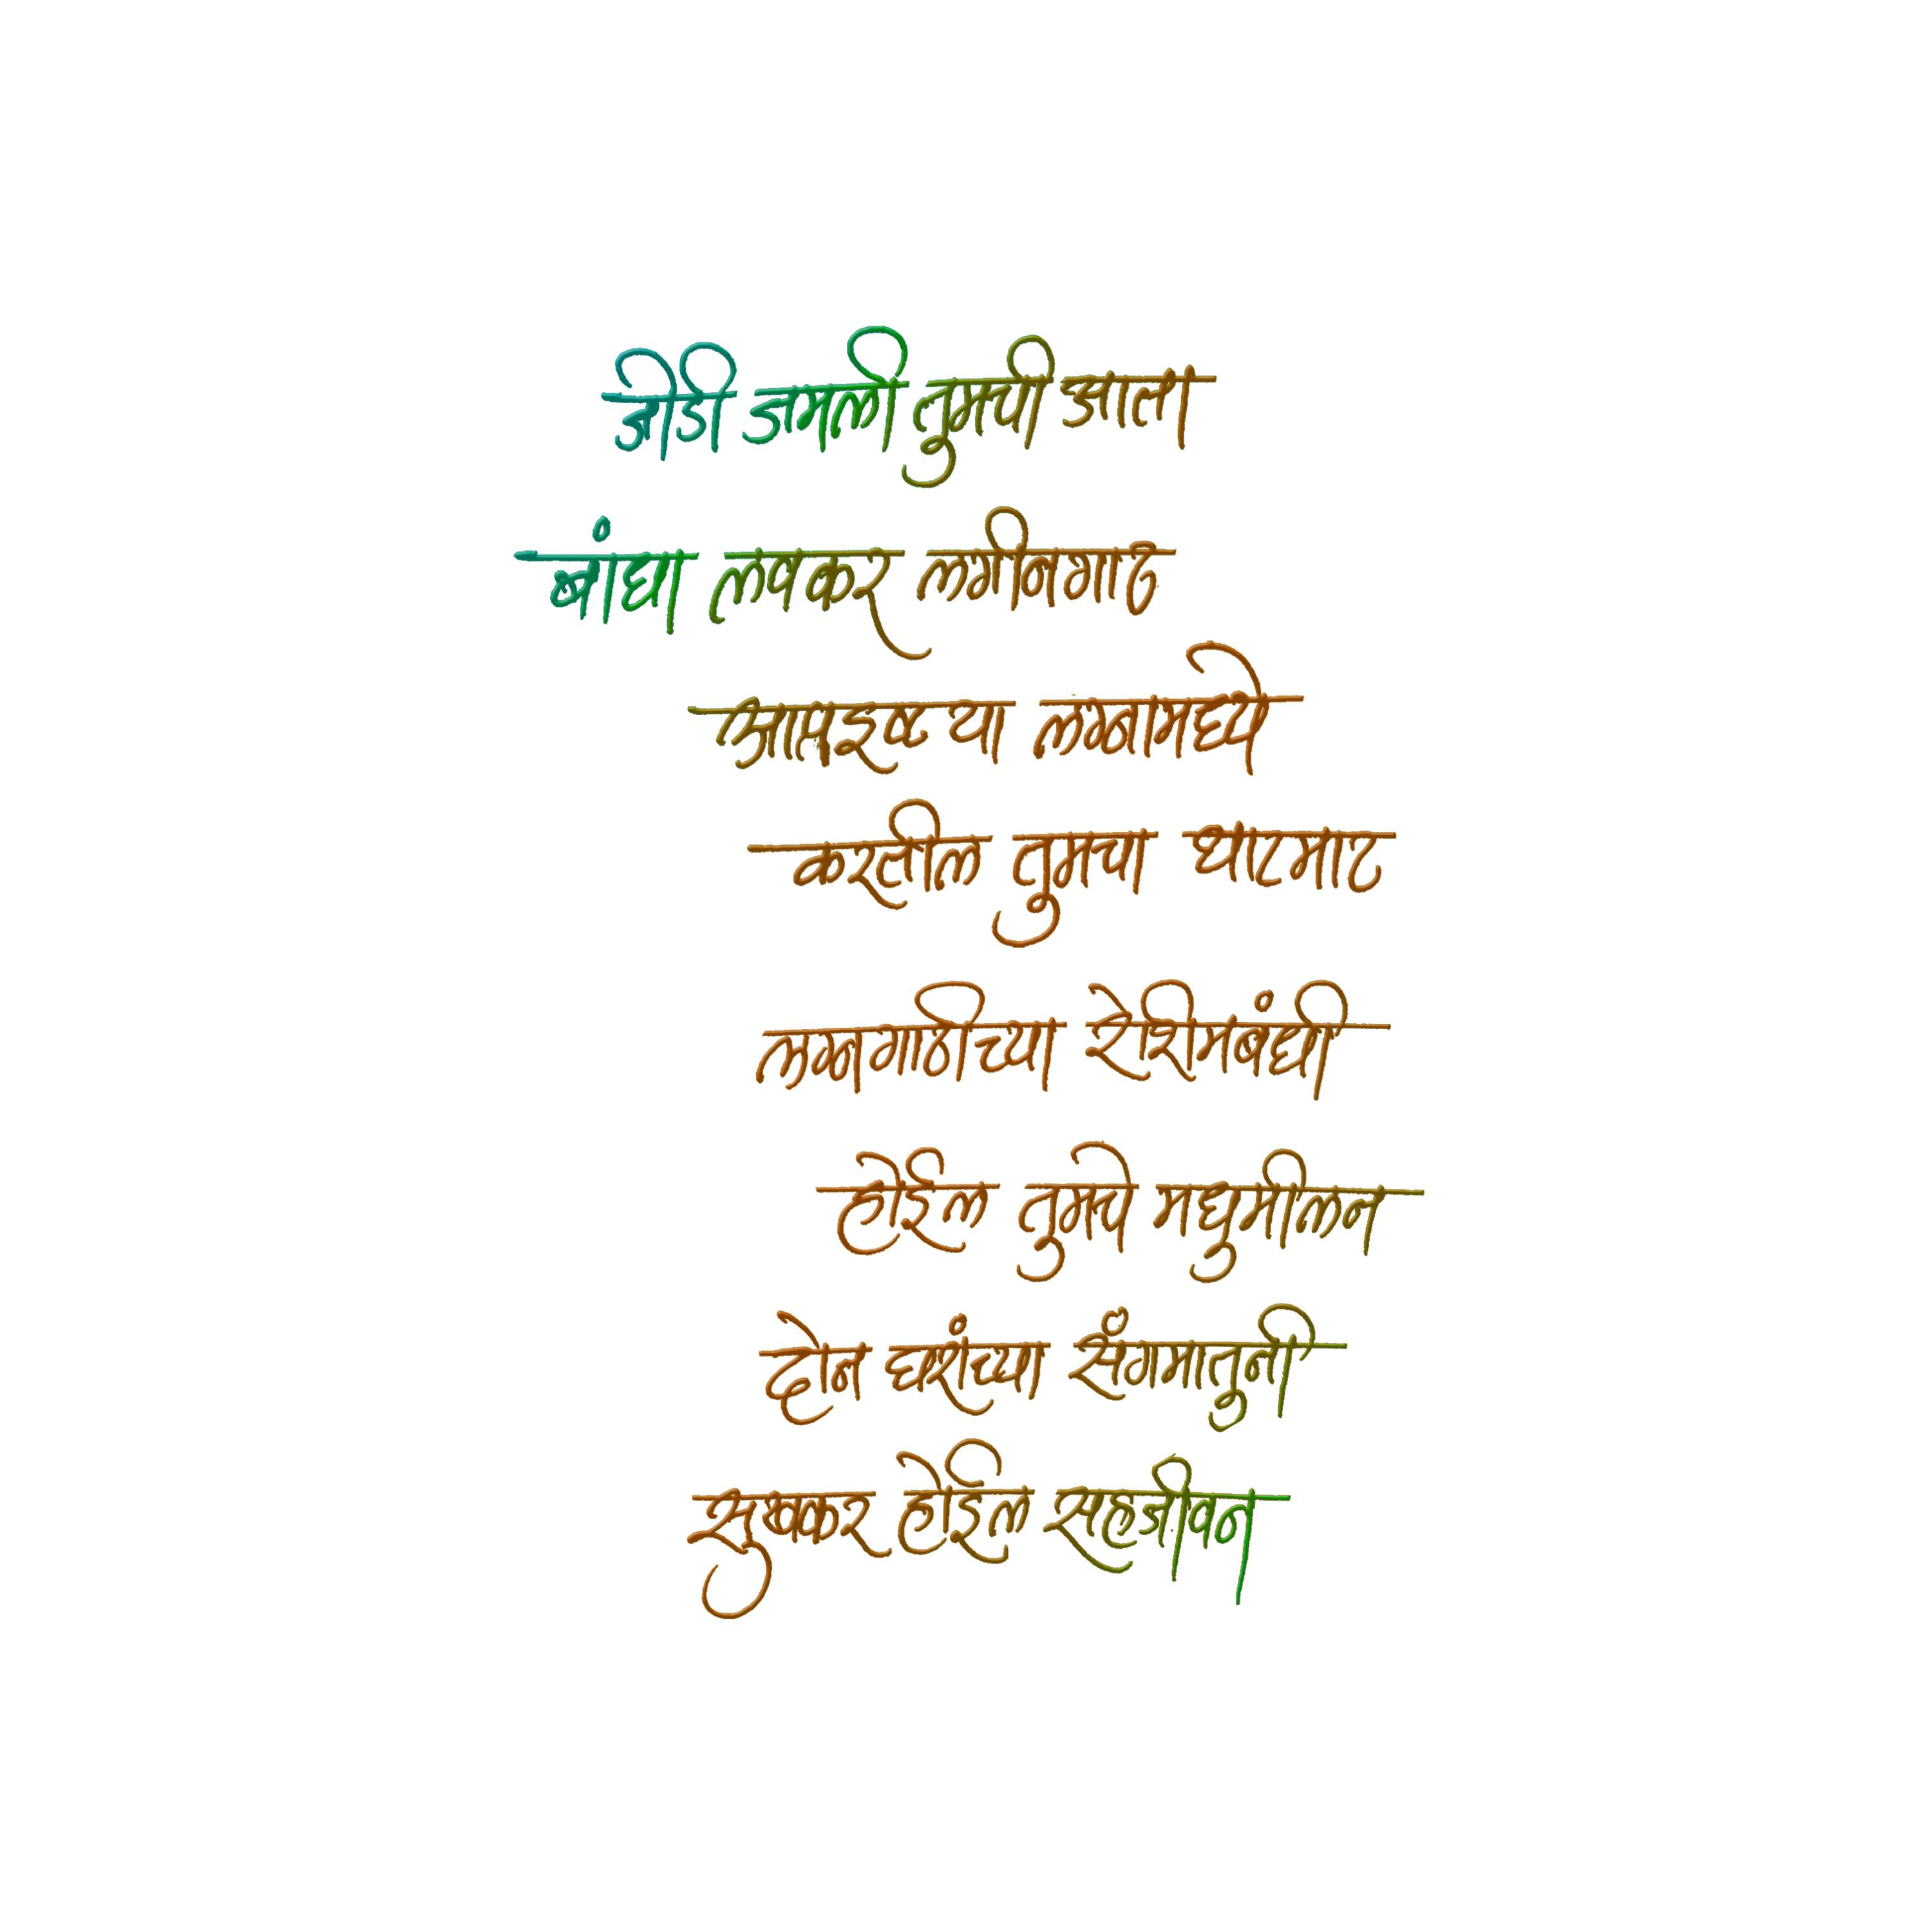 जोडी जमली तुमची आता
बांधा लवकर लगीनगाठ
आप्तइष्ट या लग्नामध्ये
करतील तुमचा थाटमाट
लग्नगाठीच्या रेशीमबंधी
होईल तुमचे मधुमीलन
दोन घरांच्या संगमातुनी
सुखकर होईल सहजीवन